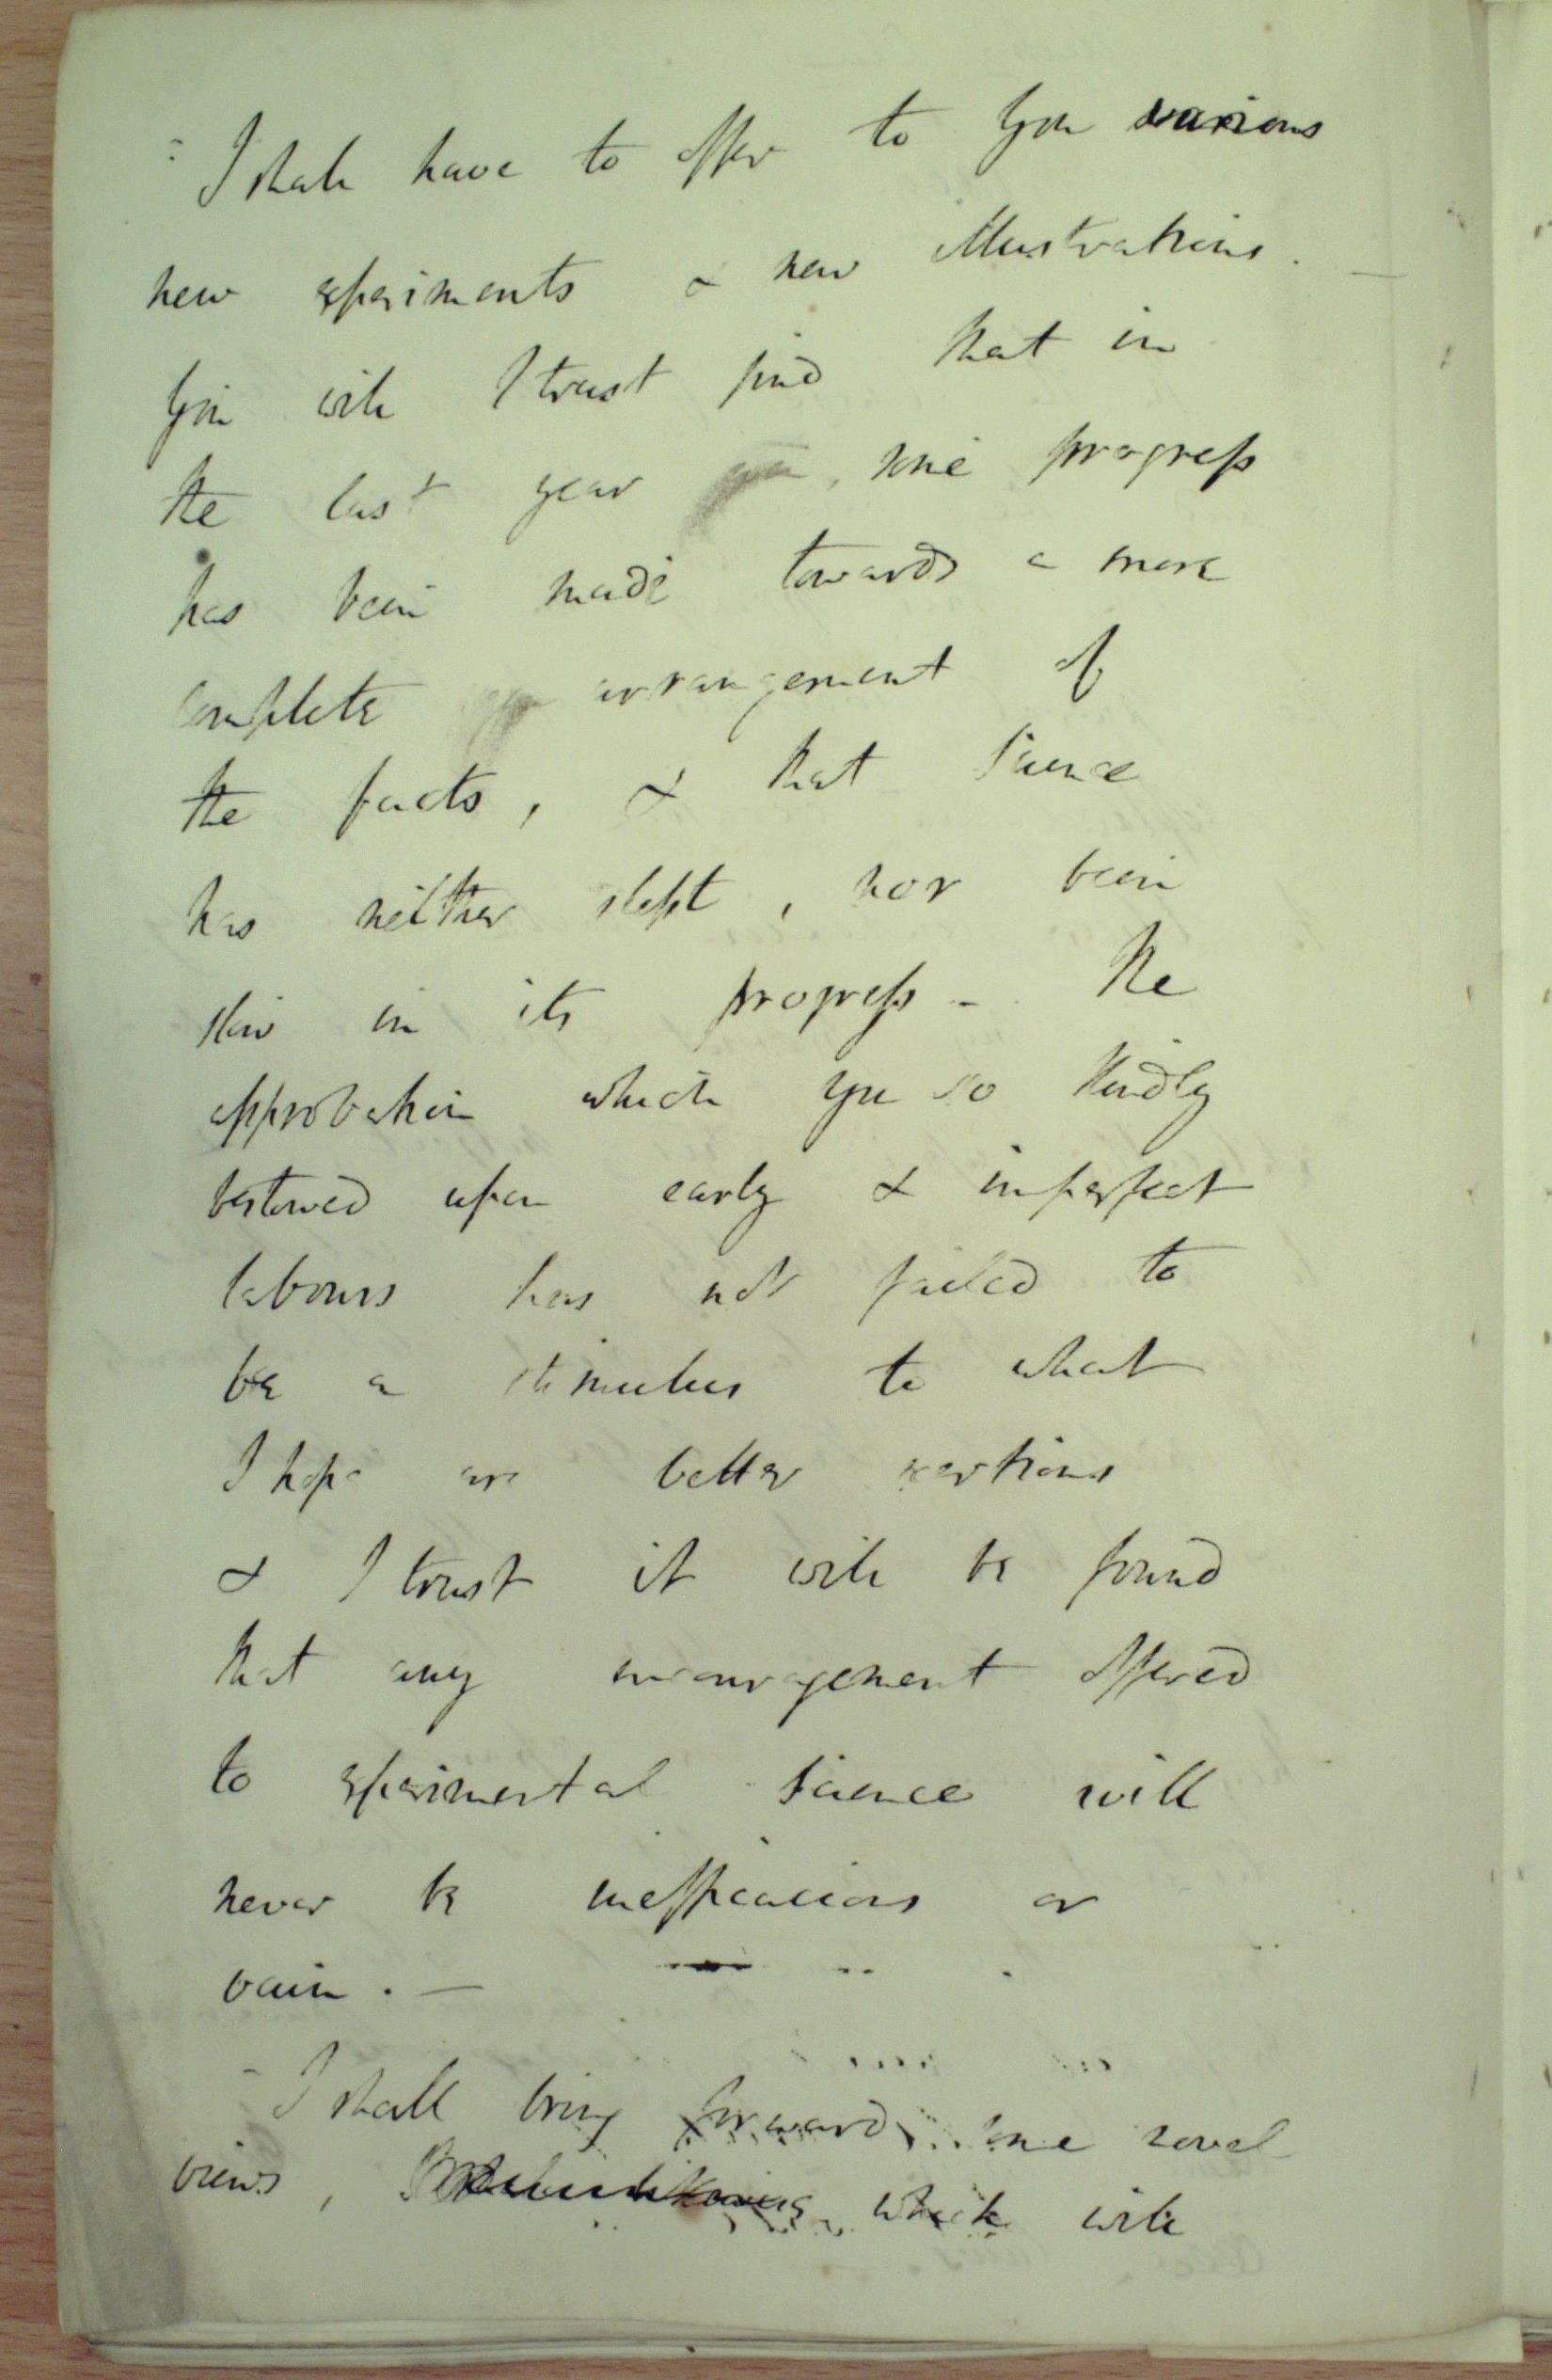 I shall have to offer to you various
new experiments & new illustrations.
You will I trust find that in
the last year, some progress
has been made towards a more
complete arrangement of
the facts, & that Science
has neither slept, nor been
slow in its progress - The
approbation which you so kindly
bestowed upon early & imperfect
labours has not failed to
be a stimulus to what
I hope are better exertions
& I trust it will be found
that any encouragement offered
to experimental science will
never be inefficacious or
vain. —
- I shall bring forward some novel
views, which will